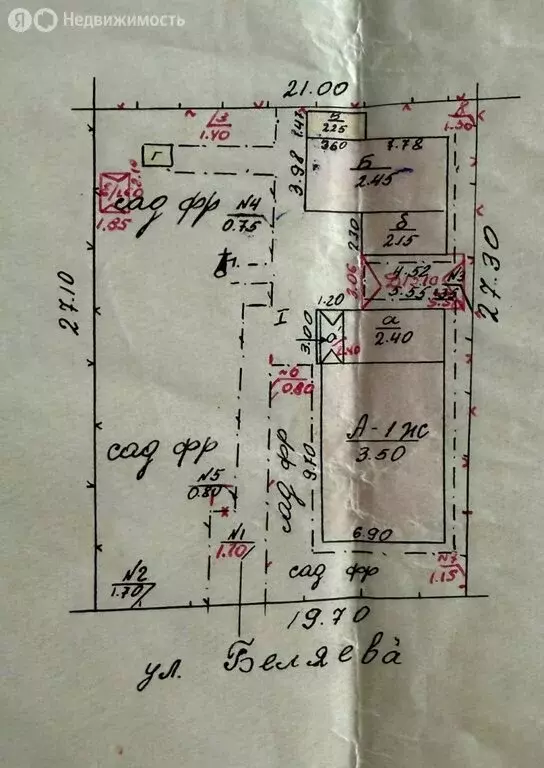 Я Недвижимость
21.00
3
1.40
1.47
В
2.25
8
1.30
3.60
7.78
Г
3.98
Б
2.45
сад фр
1.85
N4
0.75
2.30
б
2.15
4.52
N3
3.06
5.55
27.10
27.30
I
1.20
3.00
а
2.40
1.40
N6
0.80
сад фр
9.70
А-1жс
3.50
сад фр
N5
0.80
N1
1.10
6.90
N2
1.70
сад фр
N7
1.15
19.70
ул. Беляева